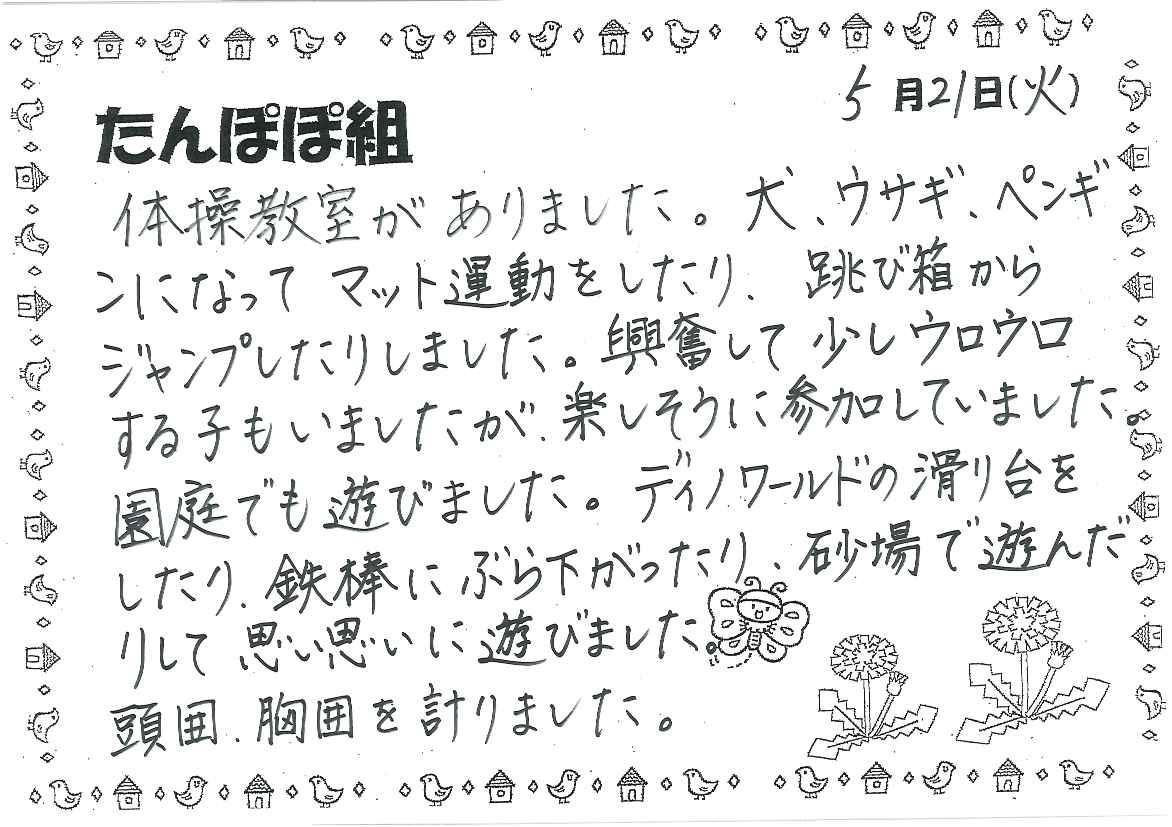 5月21日(火)
たんぽぽ組
体操教室がありました。犬、ウサギ、ペンギ
ンになってマット運動をしたり、跳び箱から
ジャンプしたりしました。興奮して少しウロウロ
する子もいましたが、楽しそうに参加していました。
園庭でも遊びました。ディノワールドの滑り台を
したり、鉄棒にぶら下がったり、砂場で遊んだ
りして思い思いに遊びました。
頭囲、胸囲を計りました。